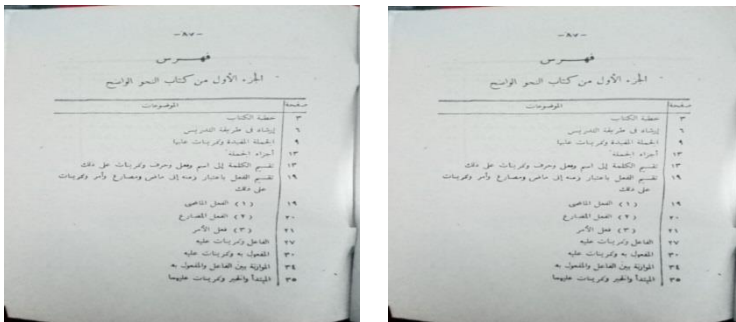 -٨٧-
فهرس
الجزء الأول من كتاب النحو الواضح
صفحة الموضوعات
٣ خطبة الكتاب
٦ إرشاد فى طريقة التدريس
٩ الجملة المفيدة وتمرينات عليها
١٣ أجزاء الجملة
١٣ تقسيم الكلمة إلى اسم وفعل وحرف وتمرينات على ذلك
١٩ تقسيم الفعل باعتبار زمنه إلى ماض ومضارع وأمر وتمرينات
على ذلك
١٩ (١) الفعل الماضى
٢٠ (٢) الفعل المضارع
٢١ (٣) فعل الأمر
٢٧ الفاعل وتمرينات عليه
٣٠ المفعول به وتمرينات عليه
٣٤ الموازنة بين الفاعل والمفعول به
٣٥ المبتدأ والخبر وتمرينات عليهما
-٨٧-
فهرس
الجزء الأول من كتاب النحو الواضح
صفحة الموضوعات
٣ خطبة الكتاب
٦ إرشاد فى طريقة التدريس
٩ الجملة المفيدة وتمرينات عليها
١٣ أجزاء الجملة
١٣ تقسيم الكلمة إلى اسم وفعل وحرف وتمرينات على ذلك
١٩ تقسيم الفعل باعتبار زمنه إلى ماض ومضارع وأمر وتمرينات
على ذلك
١٩ (١) الفعل الماضى
٢٠ (٢) الفعل المضارع
٢١ (٣) فعل الأمر
٢٧ الفاعل وتمرينات عليه
٣٠ المفعول به وتمرينات عليه
٣٤ الموازنة بين الفاعل والمفعول به
٣٥ المبتدأ والخبر وتمرينات عليهما